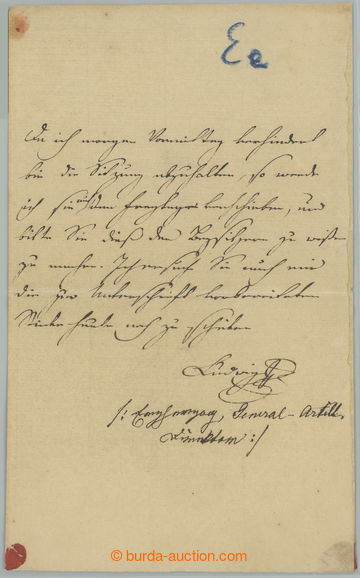 Ee
Da ich morgen Vormittag verhindert
bin die Sitzung abzuhalten, so werde
ich sie auf den verschieben, und
bitte Sie dieß den Beysitzern zu wissen
zu machen. Ich ersuche Sie auch mir
die zur Unterschrift vorbereiteten
Stücke heute noch zu schicken
Ludwig
/: Erzherzog, General-Artill.
Direktor :/
© burda-auction.com